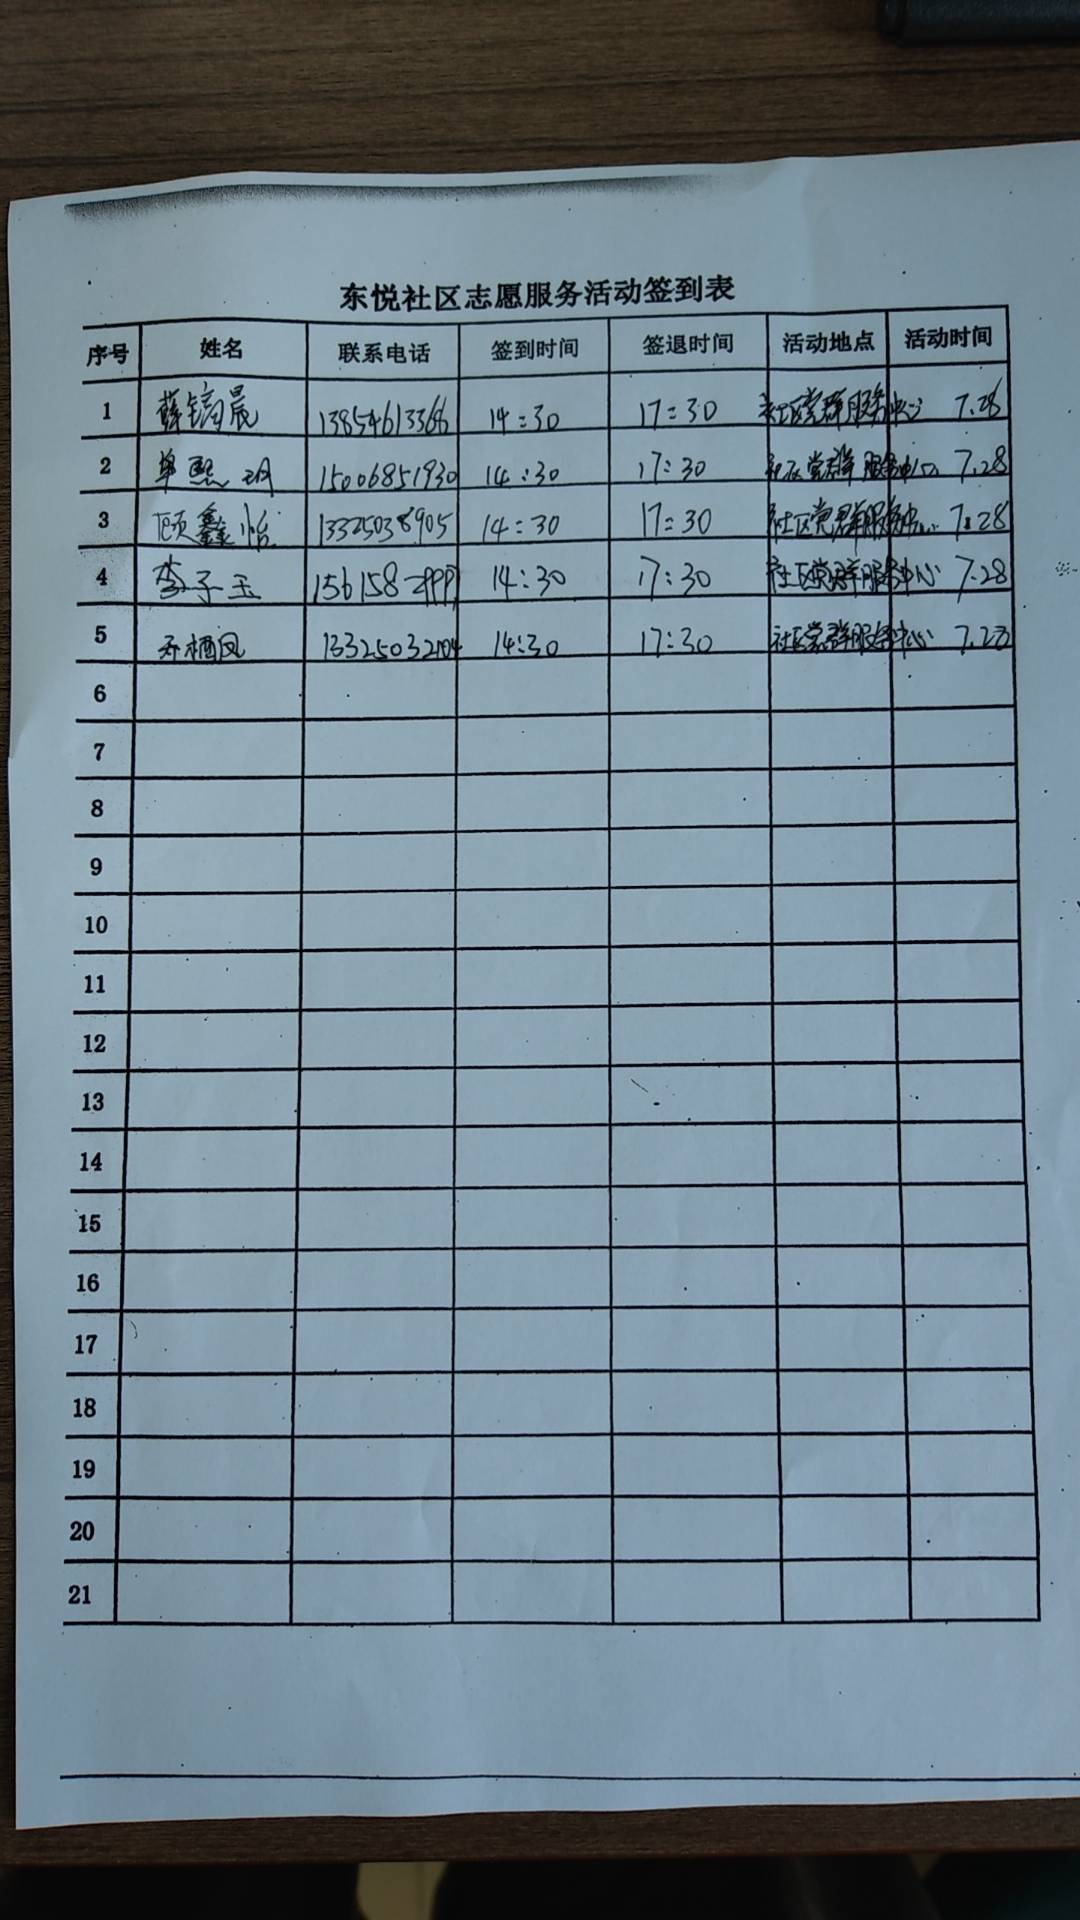 东悦社区志愿服务活动签到表
序号 姓名 联系电话 签到时间 签退时间 活动地点 活动时间
1 薛镐晨 13854613366 14:30 17:30 社区党群服务中心 7.28
2 单熙玥 15006851930 14:30 17:30 社区党群服务中心 7.28
3 顾鑫怡 13325038905 14:30 17:30 社区党群服务中心 7.28
4 李子玉 14:30 17:30 社区党群服务中心 7.28
5 14:30 17:30 社区党群服务中心 7.28
6
7
8
9
10
11
12
13
14
15
16
17
18
19
20
21